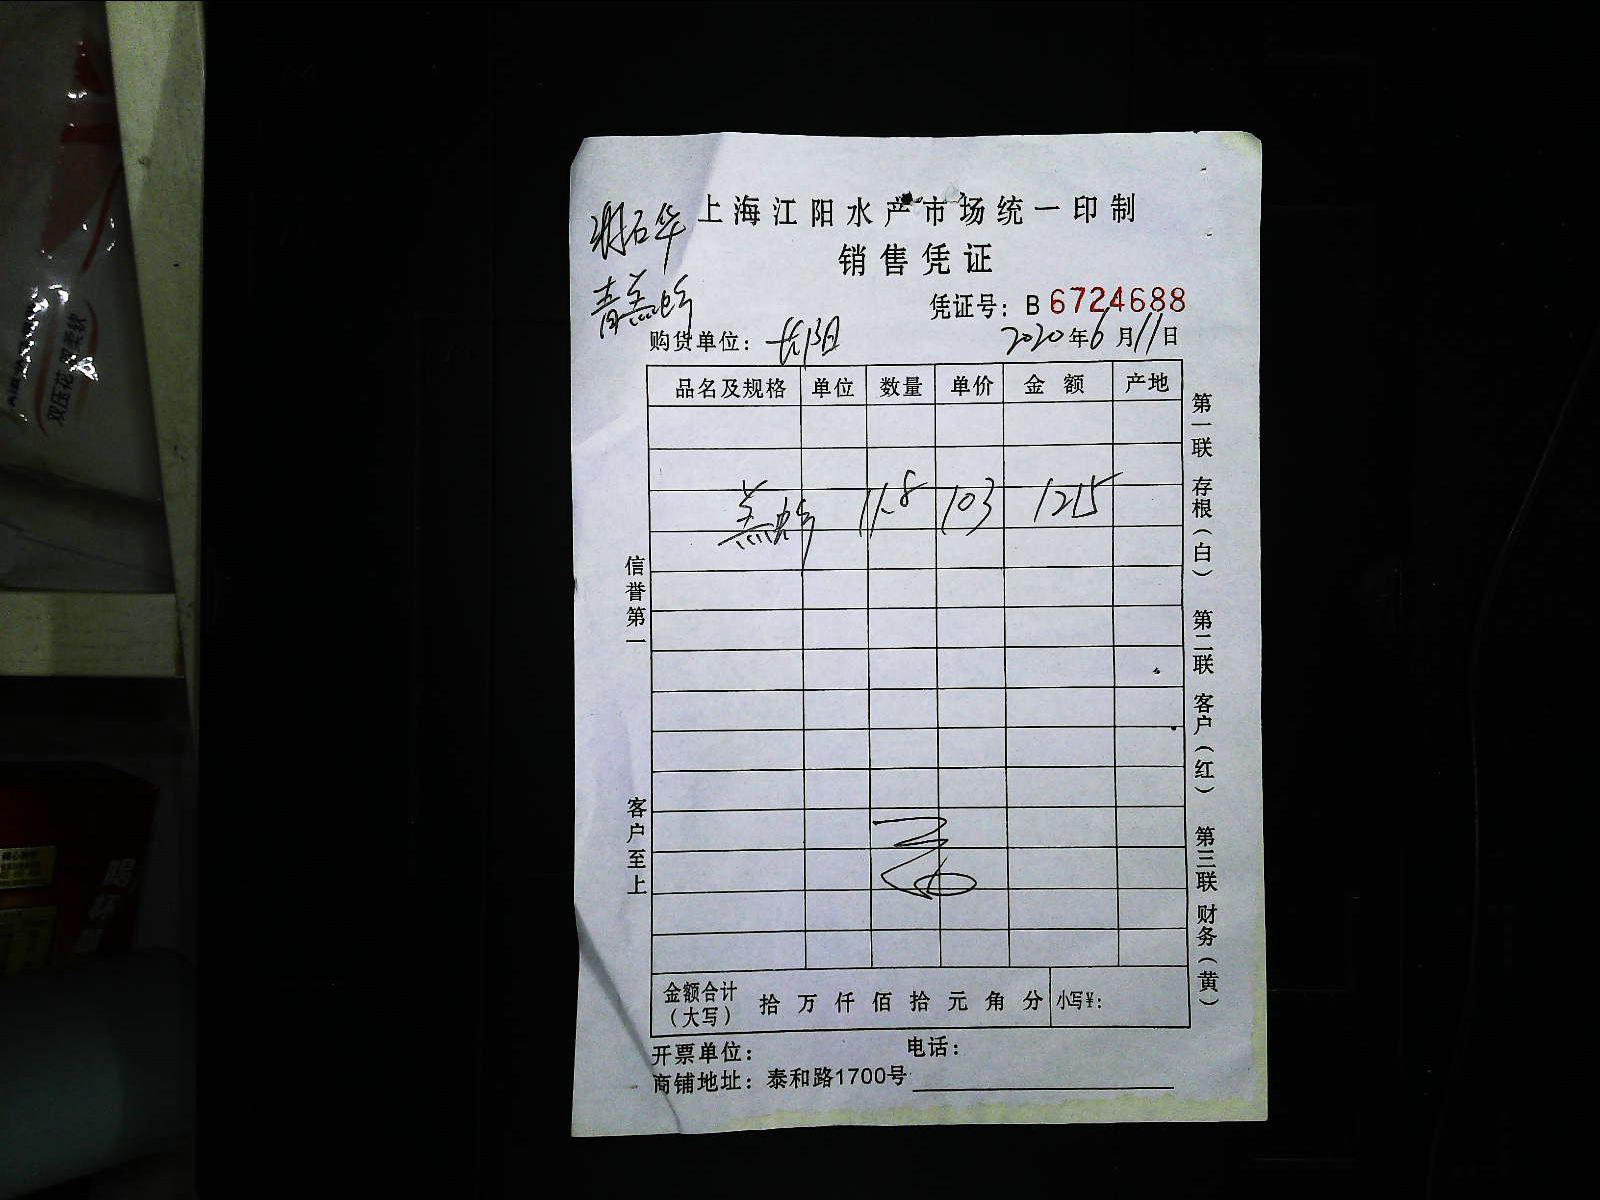 上海江阳水产市场统一印制
销售凭证
凭证号：B 6724688
购货单位：长阳 2020年6月11日
品名及规格 单位 数量 单价 金额 产地
11.8 103 1215
金额合计（大写） 拾 万 仟 佰 拾 元 角 分 小写¥：
开票单位： 电话：
商铺地址：泰和路1700号
信誉第一
客户至上
第一联 存根（白） 第二联 客户（红） 第三联 财务（黄）
双压花 更柔软
喝杯